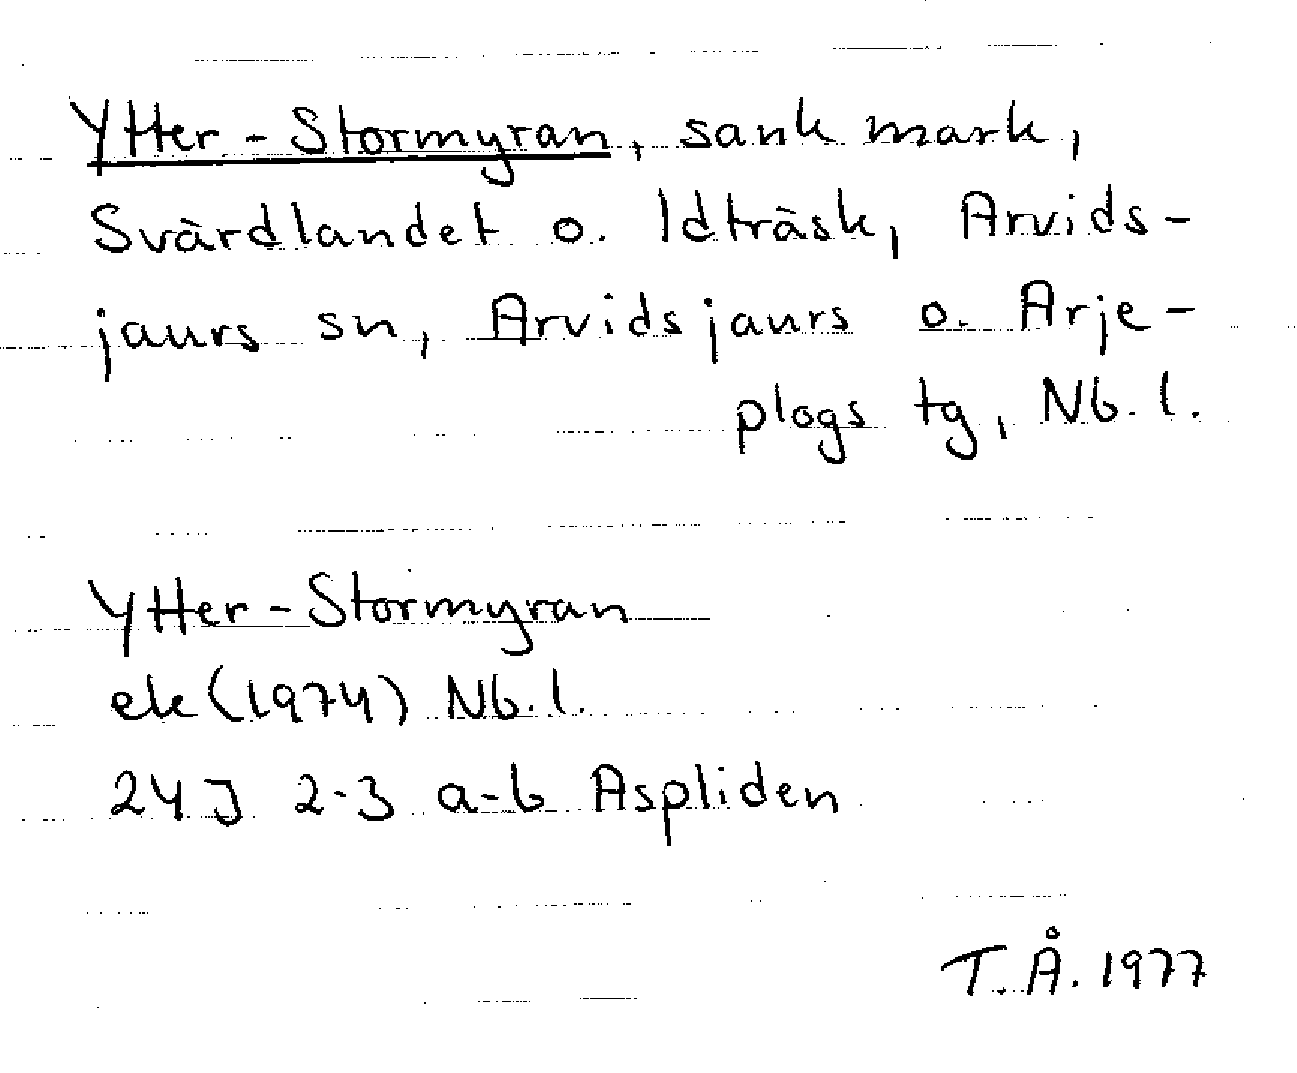 Ytter-Stormyran, sank mark,
Svärdlandet o. Idträsk, Arvids-
jaurs sn, Arvidsjaurs o. Arje-
plogs tg, Nb. l.
Ytter-Stormyran
ek (1974) Nb. l.
24J 2-3 a-b Aspliden
T.Å. 1977